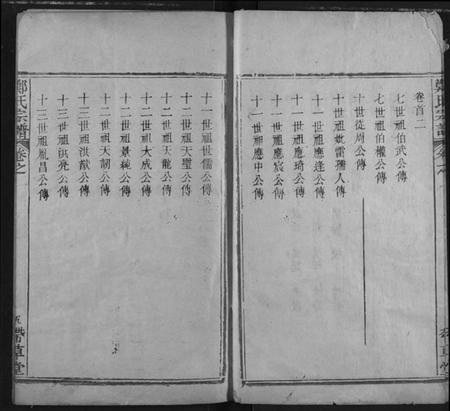 卷首二
七世祖伯武公傳
七世祖伯權公傳
十世從周公傳
十一世祖妣雷孺人傳
十一世祖應逢公傳
十一世祖應琦公傳
十一世祖應宸公傳
十一世祖應中公傳
鄭氏宗譜
十一世祖世儒公傳
十二世祖天璧公傳
十二世祖天龍公傳
十二世祖大成公傳
十二世祖景純公傳
十三世祖天韶公傳
十三世祖洪猷公傳
十三世祖洪亮公傳
十三世祖胤昌公傳
鄭氏宗譜 卷之
草堂